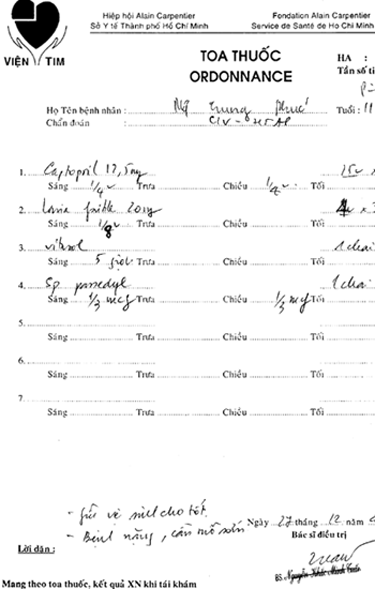 Hiệp hội Alain Carpentier
Sở Y tế Thành phố Hồ Chí Minh
Fondation Alain Carpentier
Service de Santé de Ho Chi Minh
VIỆN TIM
TOA THUỐC
ORDONNANCE
HA :
Tần số ti
Họ Tên bệnh nhân : Trung Tuổi : 11
Chẩn đoán :
1. Captopril 12,5mg
Sáng 1/4 v Trưa Chiều Tối
2. 20mg
Sáng 1/8 v Trưa Chiều Tối
3. 1 chai
Sáng 5 giọt Trưa Chiều Tối
4. Sp 1 chai
Sáng 1/3 mcf Trưa Chiều 1/3 mcf Tối
5.
Sáng Trưa Chiều Tối
6.
Sáng Trưa Chiều Tối
7.
Sáng Trưa Chiều Tối
- Giữ vệ sinh cho tốt.
- Bệnh nặng, cần mổ sớm
Ngày 27 tháng 12 năm
Bác sĩ điều trị
Lời dặn :
BS.
Mang theo toa thuốc, kết quả XN khi tái khám